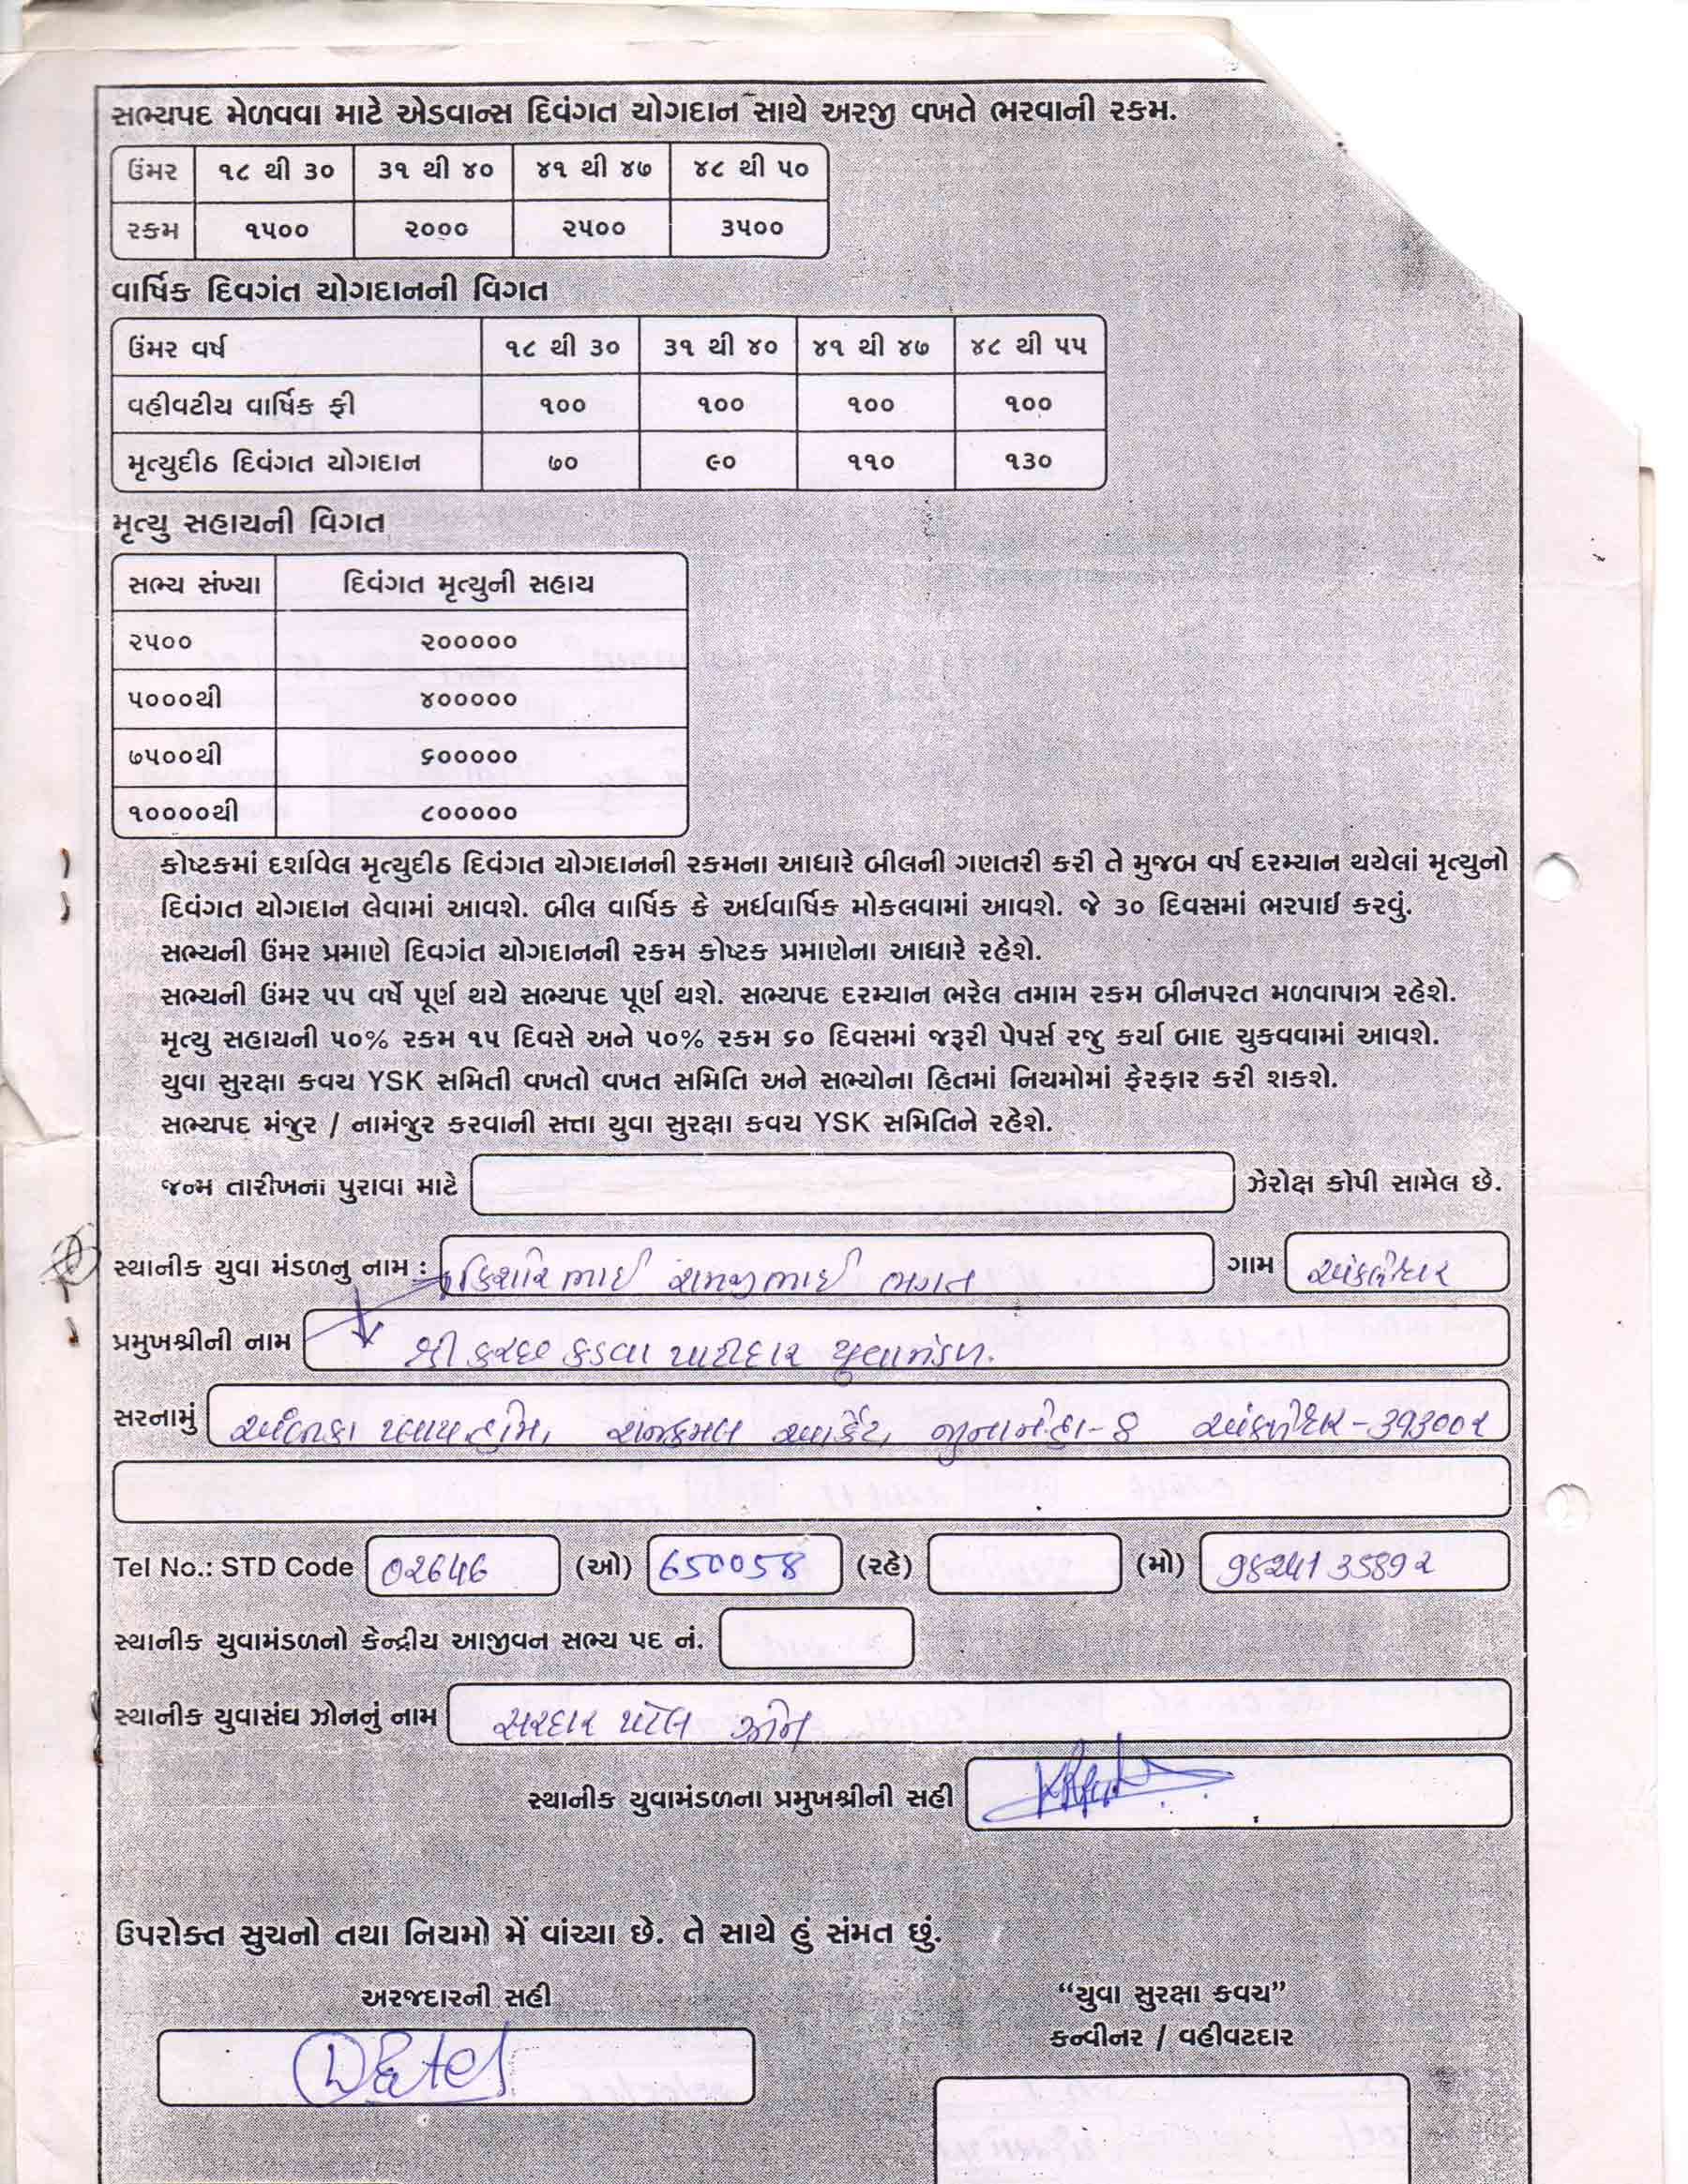 સભ્યપદ મેળવવા માટે એડવાન્સ દિવંગત યોગદાન સાથે અરજી વખતે ભરવાની રકમ.
ઉંમર ૧૮ થી ૩૦ ૩૧ થી ૪૦ ૪૧ થી ૪૭ ૪૮ થી ૫૦
રકમ ૧૫૦૦ ૨૦૦૦ ૨૫૦૦ ૩૫૦૦
વાર્ષિક દિવગંત યોગદાનની વિગત
ઉંમર વર્ષ ૧૮ થી ૩૦ ૩૧ થી ૪૦ ૪૧ થી ૪૭ ૪૮ થી ૫૫
વહીવટીય વાર્ષિક ફી ૧૦૦ ૧૦૦ ૧૦૦ ૧૦૦
મૃત્યુદીઠ દિવંગત યોગદાન ૭૦ ૯૦ ૧૧૦ ૧૩૦
મૃત્યુ સહાયની વિગત
સભ્ય સંખ્યા દિવંગત મૃત્યુની સહાય
૨૫૦૦ ૨૦૦૦૦૦
૫૦૦૦થી ૪૦૦૦૦૦
૭૫૦૦થી ૬૦૦૦૦૦
૧૦૦૦૦થી ૮૦૦૦૦૦
કોષ્ટકમાં દર્શાવેલ મૃત્યુદીઠ દિવંગત યોગદાનની રકમના આધારે બીલની ગણતરી કરી તે મુજબ વર્ષ દરમ્યાન થયેલાં મૃત્યુનો
દિવંગત યોગદાન લેવામાં આવશે. બીલ વાર્ષિક કે અર્ધવાર્ષિક મોકલવામાં આવશે. જે ૩૦ દિવસમાં ભરપાઈ કરવું.
સભ્યની ઉંમર પ્રમાણે દિવગંત યોગદાનની રકમ કોષ્ટક પ્રમાણેના આધારે રહેશે.
સભ્યની ઉંમર ૫૫ વર્ષે પૂર્ણ થયે સભ્યપદ પૂર્ણ થશે. સભ્યપદ દરમ્યાન ભરેલ તમામ રકમ બીનપરત મળવાપાત્ર રહેશે.
મૃત્યુ સહાયની ૫૦% રકમ ૧૫ દિવસે અને ૫૦% રકમ ૬૦ દિવસમાં જરૂરી પેપર્સ રજુ કર્યા બાદ ચુકવવામાં આવશે.
યુવા સુરક્ષા કવચ YSK સમિતી વખતો વખત સમિતિ અને સભ્યોના હિતમાં નિયમોમાં ફેરફાર કરી શકશે.
સભ્યપદ મંજુર / નામંજુર કરવાની સત્તા યુવા સુરક્ષા કવચ YSK સમિતિને રહેશે.
જન્મ તારીખના પુરાવા માટે ઝેરોક્ષ કોપી સામેલ છે.
સ્થાનીક યુવા મંડળનુ નામ : કિશોરભાઈ રામજીભાઈ ભગત ગામ અંકલેશ્વર
પ્રમુખશ્રીની નામ શ્રી કચ્છ કડવા પાટીદાર યુવામંડળ.
સરનામું રાજકમલ આર્કેડ, અંકલેશ્વર-393002
Tel No.: STD Code 02646 (ઓ) 650058 (રહે) (મો) 9824135892
સ્થાનીક યુવામંડળનો કેન્દ્રીય આજીવન સભ્ય પદ નં.
સ્થાનીક યુવાસંઘ ઝોનનું નામ સરદાર પટેલ ઝોન
સ્થાનીક યુવામંડળના પ્રમુખશ્રીની સહી
ઉપરોક્ત સુચનો તથા નિયમો મેં વાંચ્યા છે. તે સાથે હું સંમત છું.
અરજદારની સહી “યુવા સુરક્ષા કવચ”
કન્વીનર / વહીવટદાર